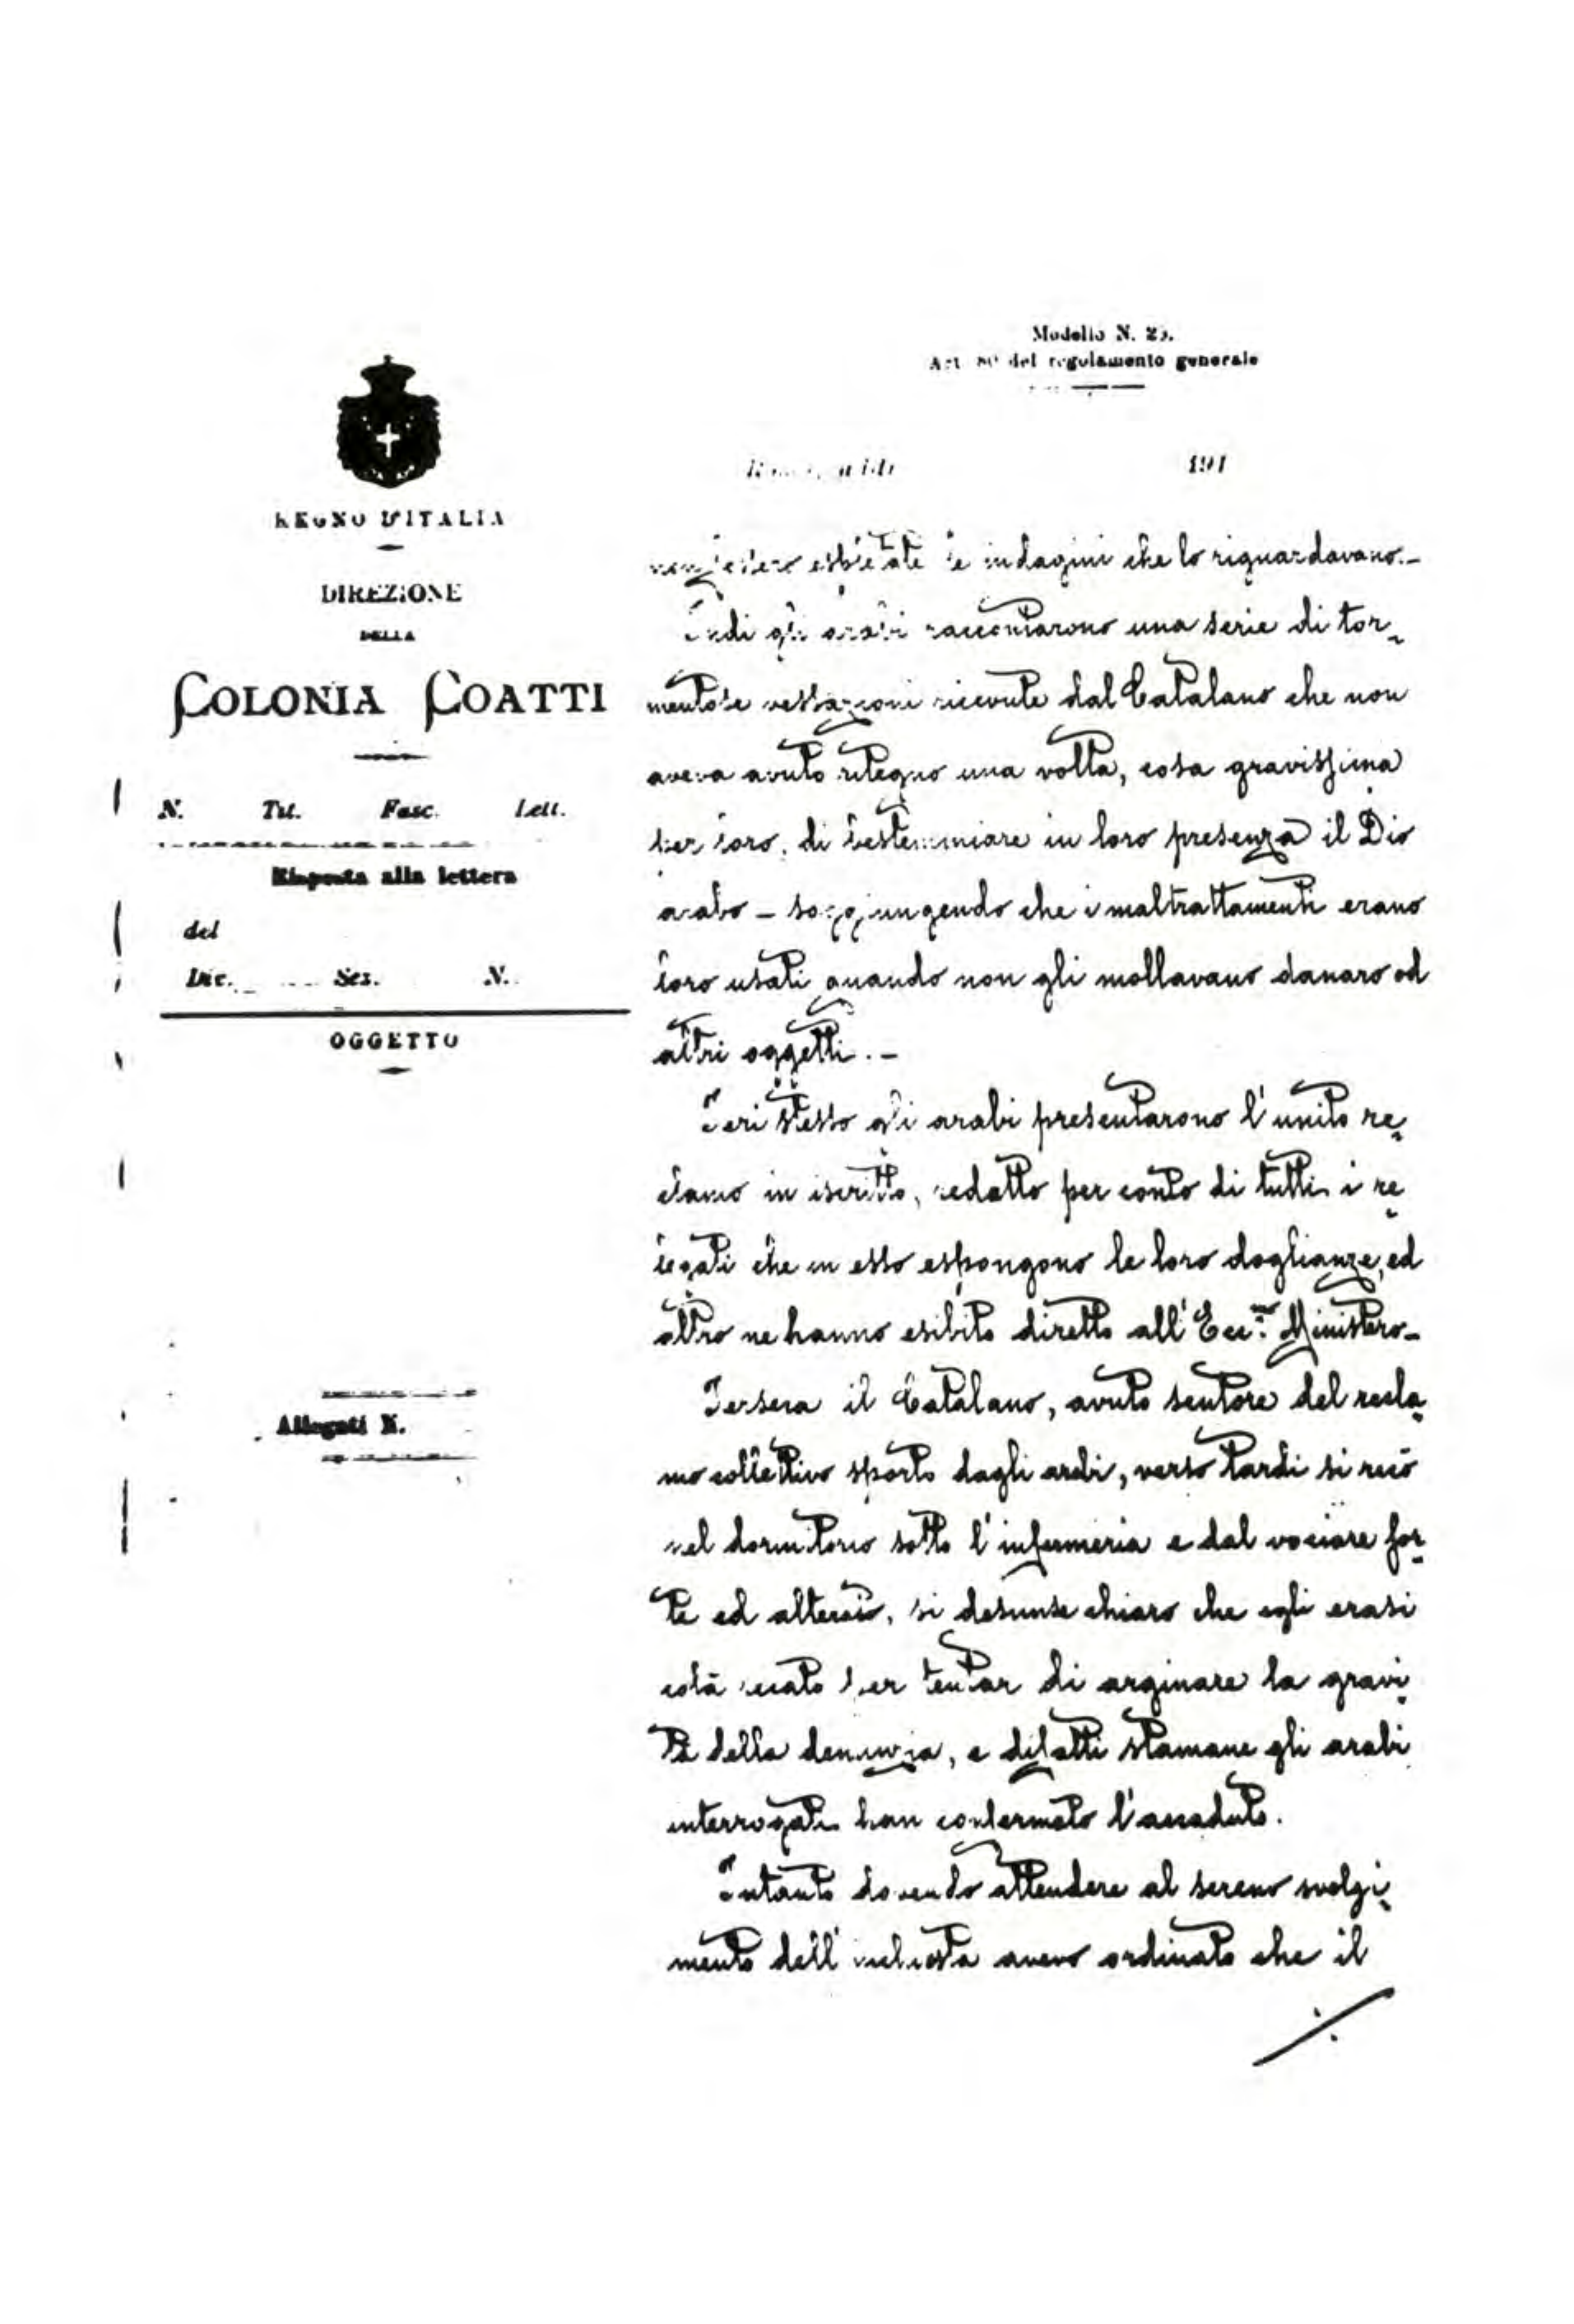 Modello N. 25.
Art. 80 del regolamento generale
REGNO D'ITALIA
DIREZIONE
DELLA
COLONIA COATTI
N. Tit. Fasc. Lett.
Risposta alla lettera
del
Div. Sez. N.
OGGETTO
Allegati N.
191
espletate le indagini che lo riguardavano.-
Indi gli arabi raccontarono una serie di tor-
mentose vessazioni ricevute dal Catalano che non
aveva avuto ritegno una volta, cosa gravissima
per loro, di bestemmiare in loro presenza il Dio
arabo - soggiungendo che i maltrattamenti erano
loro usati quando non gli mollavano danaro od
altri oggetti.-
Ieri stesso gli arabi presentarono l'unito re-
clamo in iscritto, redatto per conto di tutti i re-
legati che in esso espongono le loro doglianze, ed
altro ne hanno esibito diretto all'Ecc.mo Ministero-
Iersera il Catalano, avuto sentore del recla-
mo collettivo sporto dagli arabi, verso tardi si recò
nel dormitorio sotto l'infermeria e dal vociare for-
te ed alterato, si desunse chiaro che egli erasi
colà recato per tentar di arginare la gravi-
tà della denunzia, e difatti stamane gli arabi
interrogati han confermato l'accaduto.
Intanto dovendo attendere al sereno svolgi-
mento dell'inchiesta avevo ordinato che il
./.